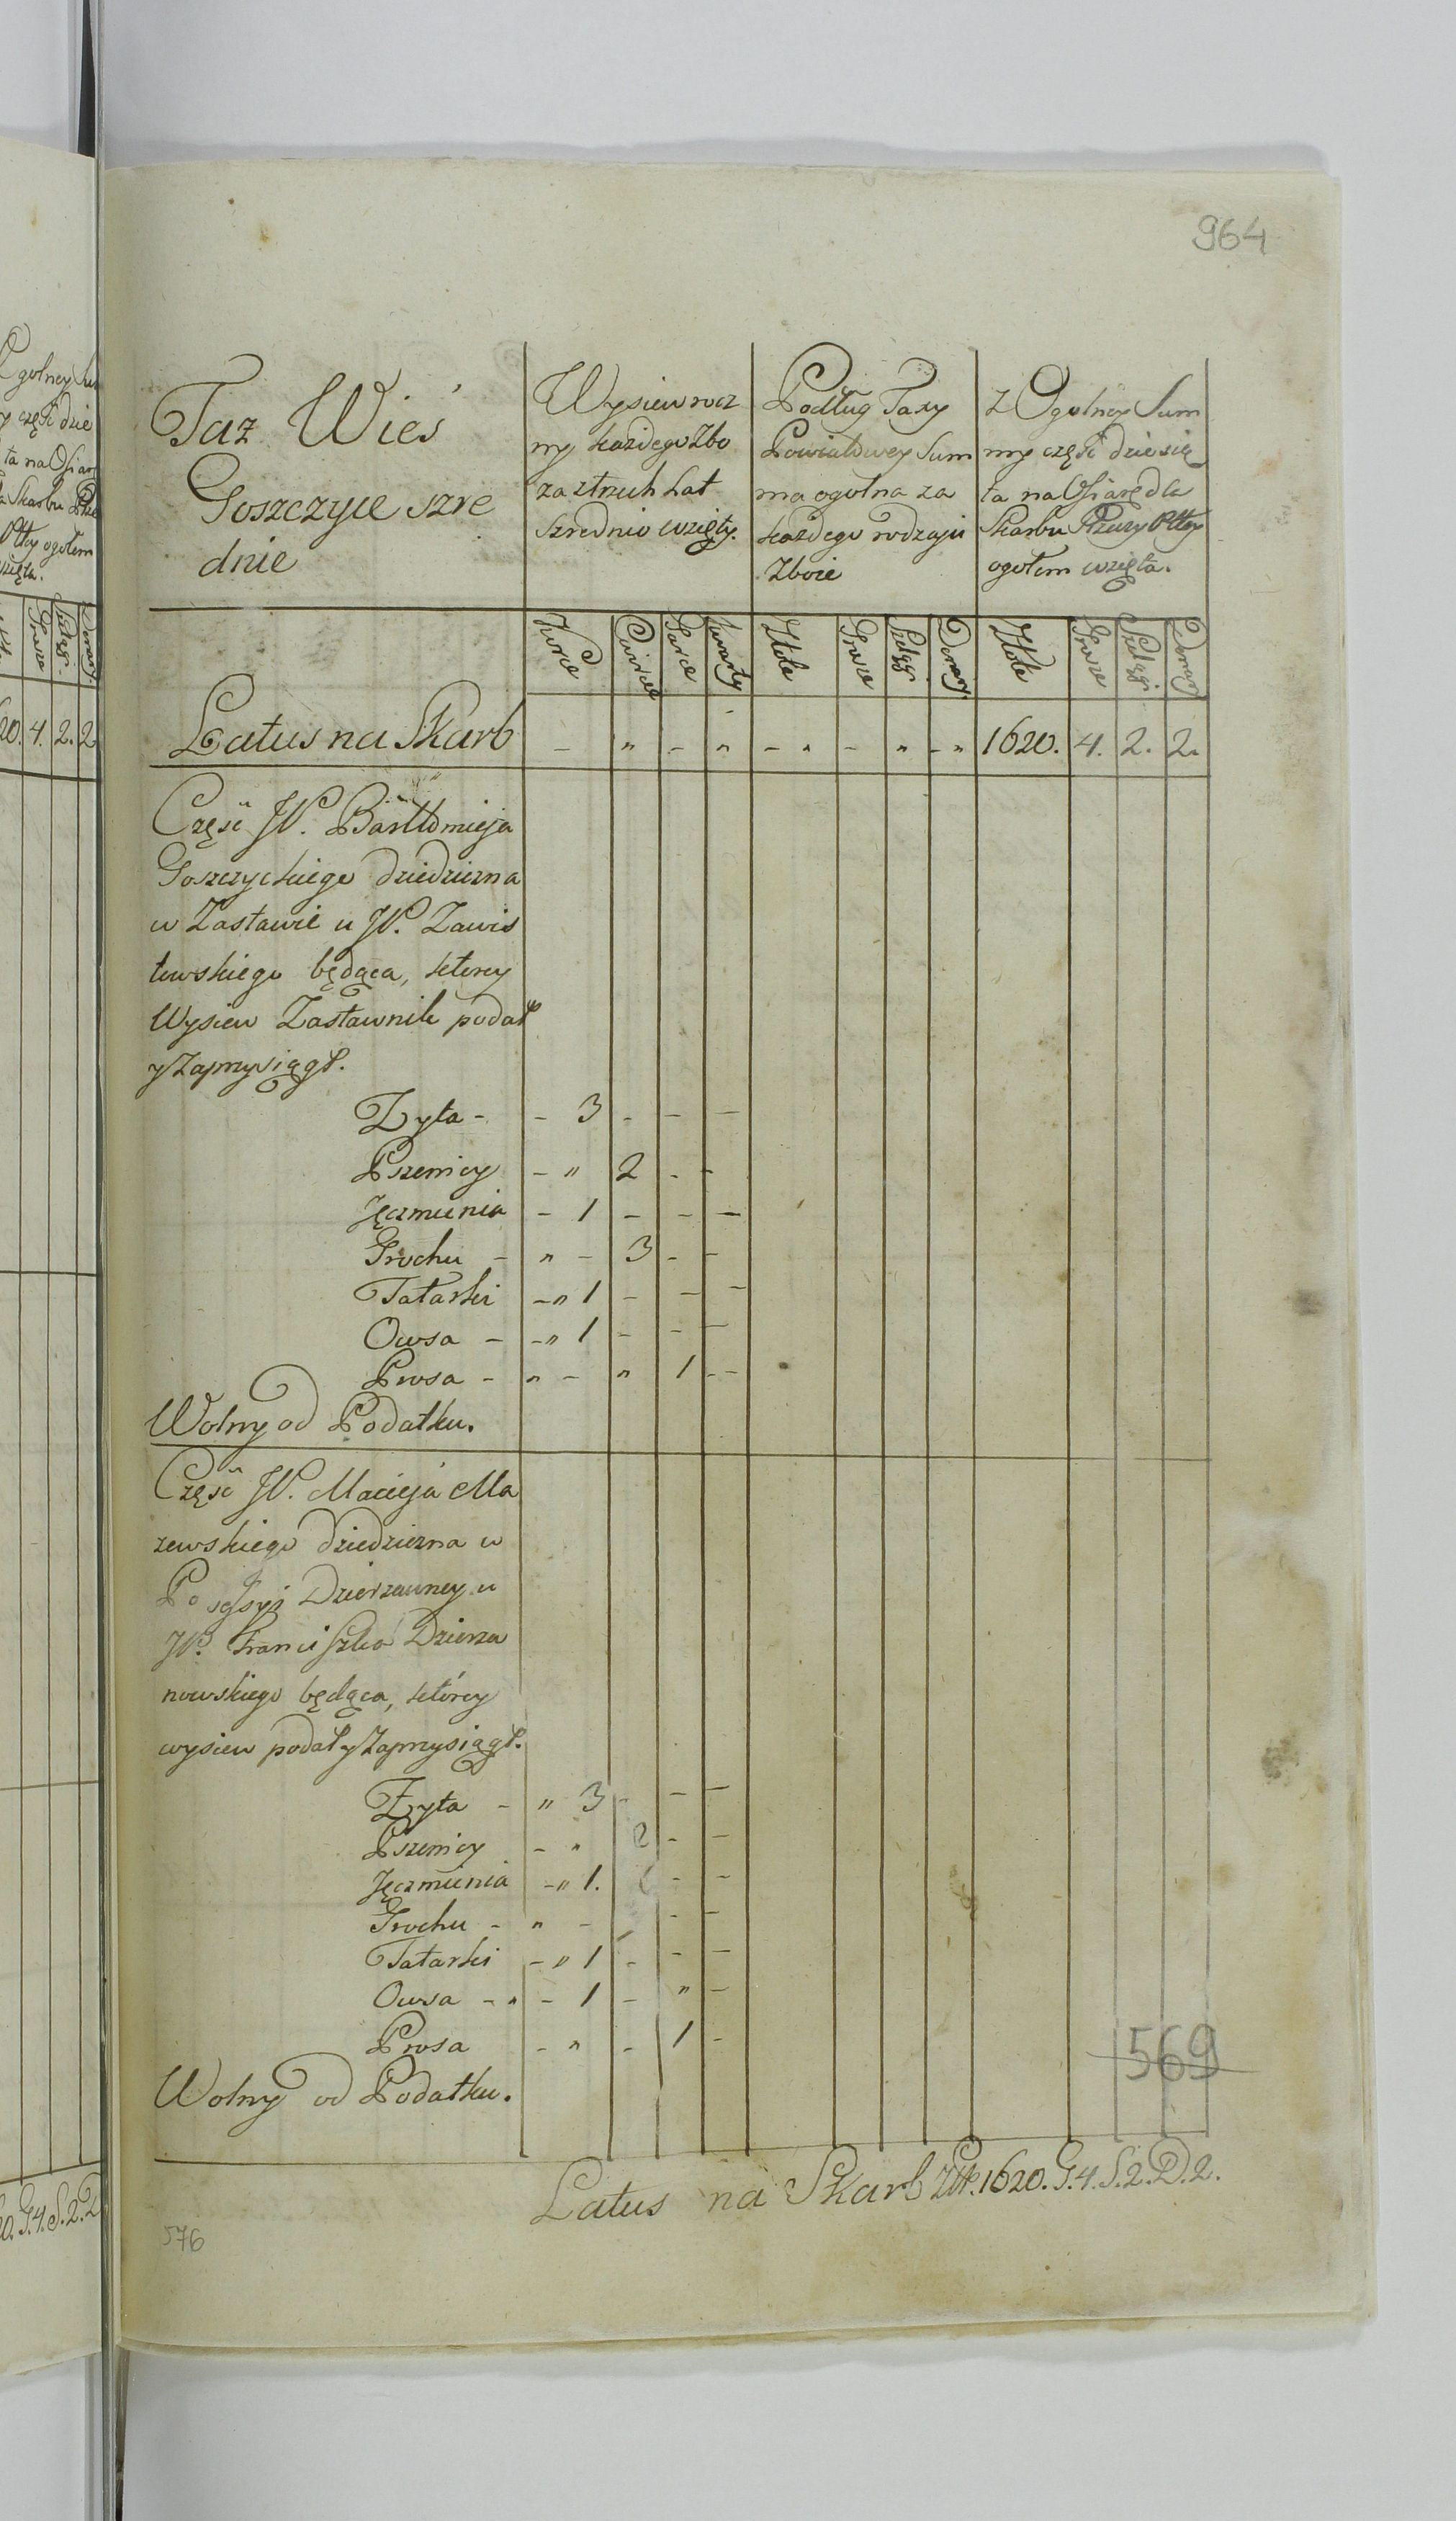 964
Taz Wieś
Goszczyce szre
dnie
Wysiew rocz
ny każdego Zbo
za z trzech Lat
szrednio wzięty.
Podług Taxy
Powiatowey Sum
ma ogolna za
każdego rodzaju
Zboże
z Ogolney Sum
my część dziesię
ta na Ofiarę dla
Skarbu Rzeczy Pltey
ogołem wzięta.
Korce Cwierci Garce Kwarty Złote Grosze Szelągi Denary Złote Grosze Szelągi Denary
Latus na Skarb - " - " - " - " - " 1620. 4. 2. 2.
Część JP. Bartłomieja
Goszczyckiego dziedziczna
w Zastawie u JP. Zawis
towskiego będąca, ktorey
Wysiew Zastawnik podał
y Zaprzysiągł.
Zyta - - 3 - - -
Pszenicy - " 2 - -
Jęczmienia - 1 - - -
Grochu - " - 3 - -
Tatarki - " 1 - - -
Owsa - - " 1 - - -
Prosa - " - " 1 - -
Wolny od Podatku.
Część JP. Macieja Ma
zewskiego dziedziczna w
Possessyi Dzierzawney u
JP. Franciszka Dzierza
nowskiego będąca, ktorey
wysiew podał y Zaprzysiągł.
Zyta - " 3 - - -
Pszenicy - " 2 - -
Jęczmienia - " 1. - -
Grochu - " - - -
Tatarki - " 1 - - -
Owsa - " - 1 - " -
Prosa - " - 1 -
Wolny od Podatku.
569
Latus na Skarb Złt. 1620. G. 4. S. 2. D. 2.
576